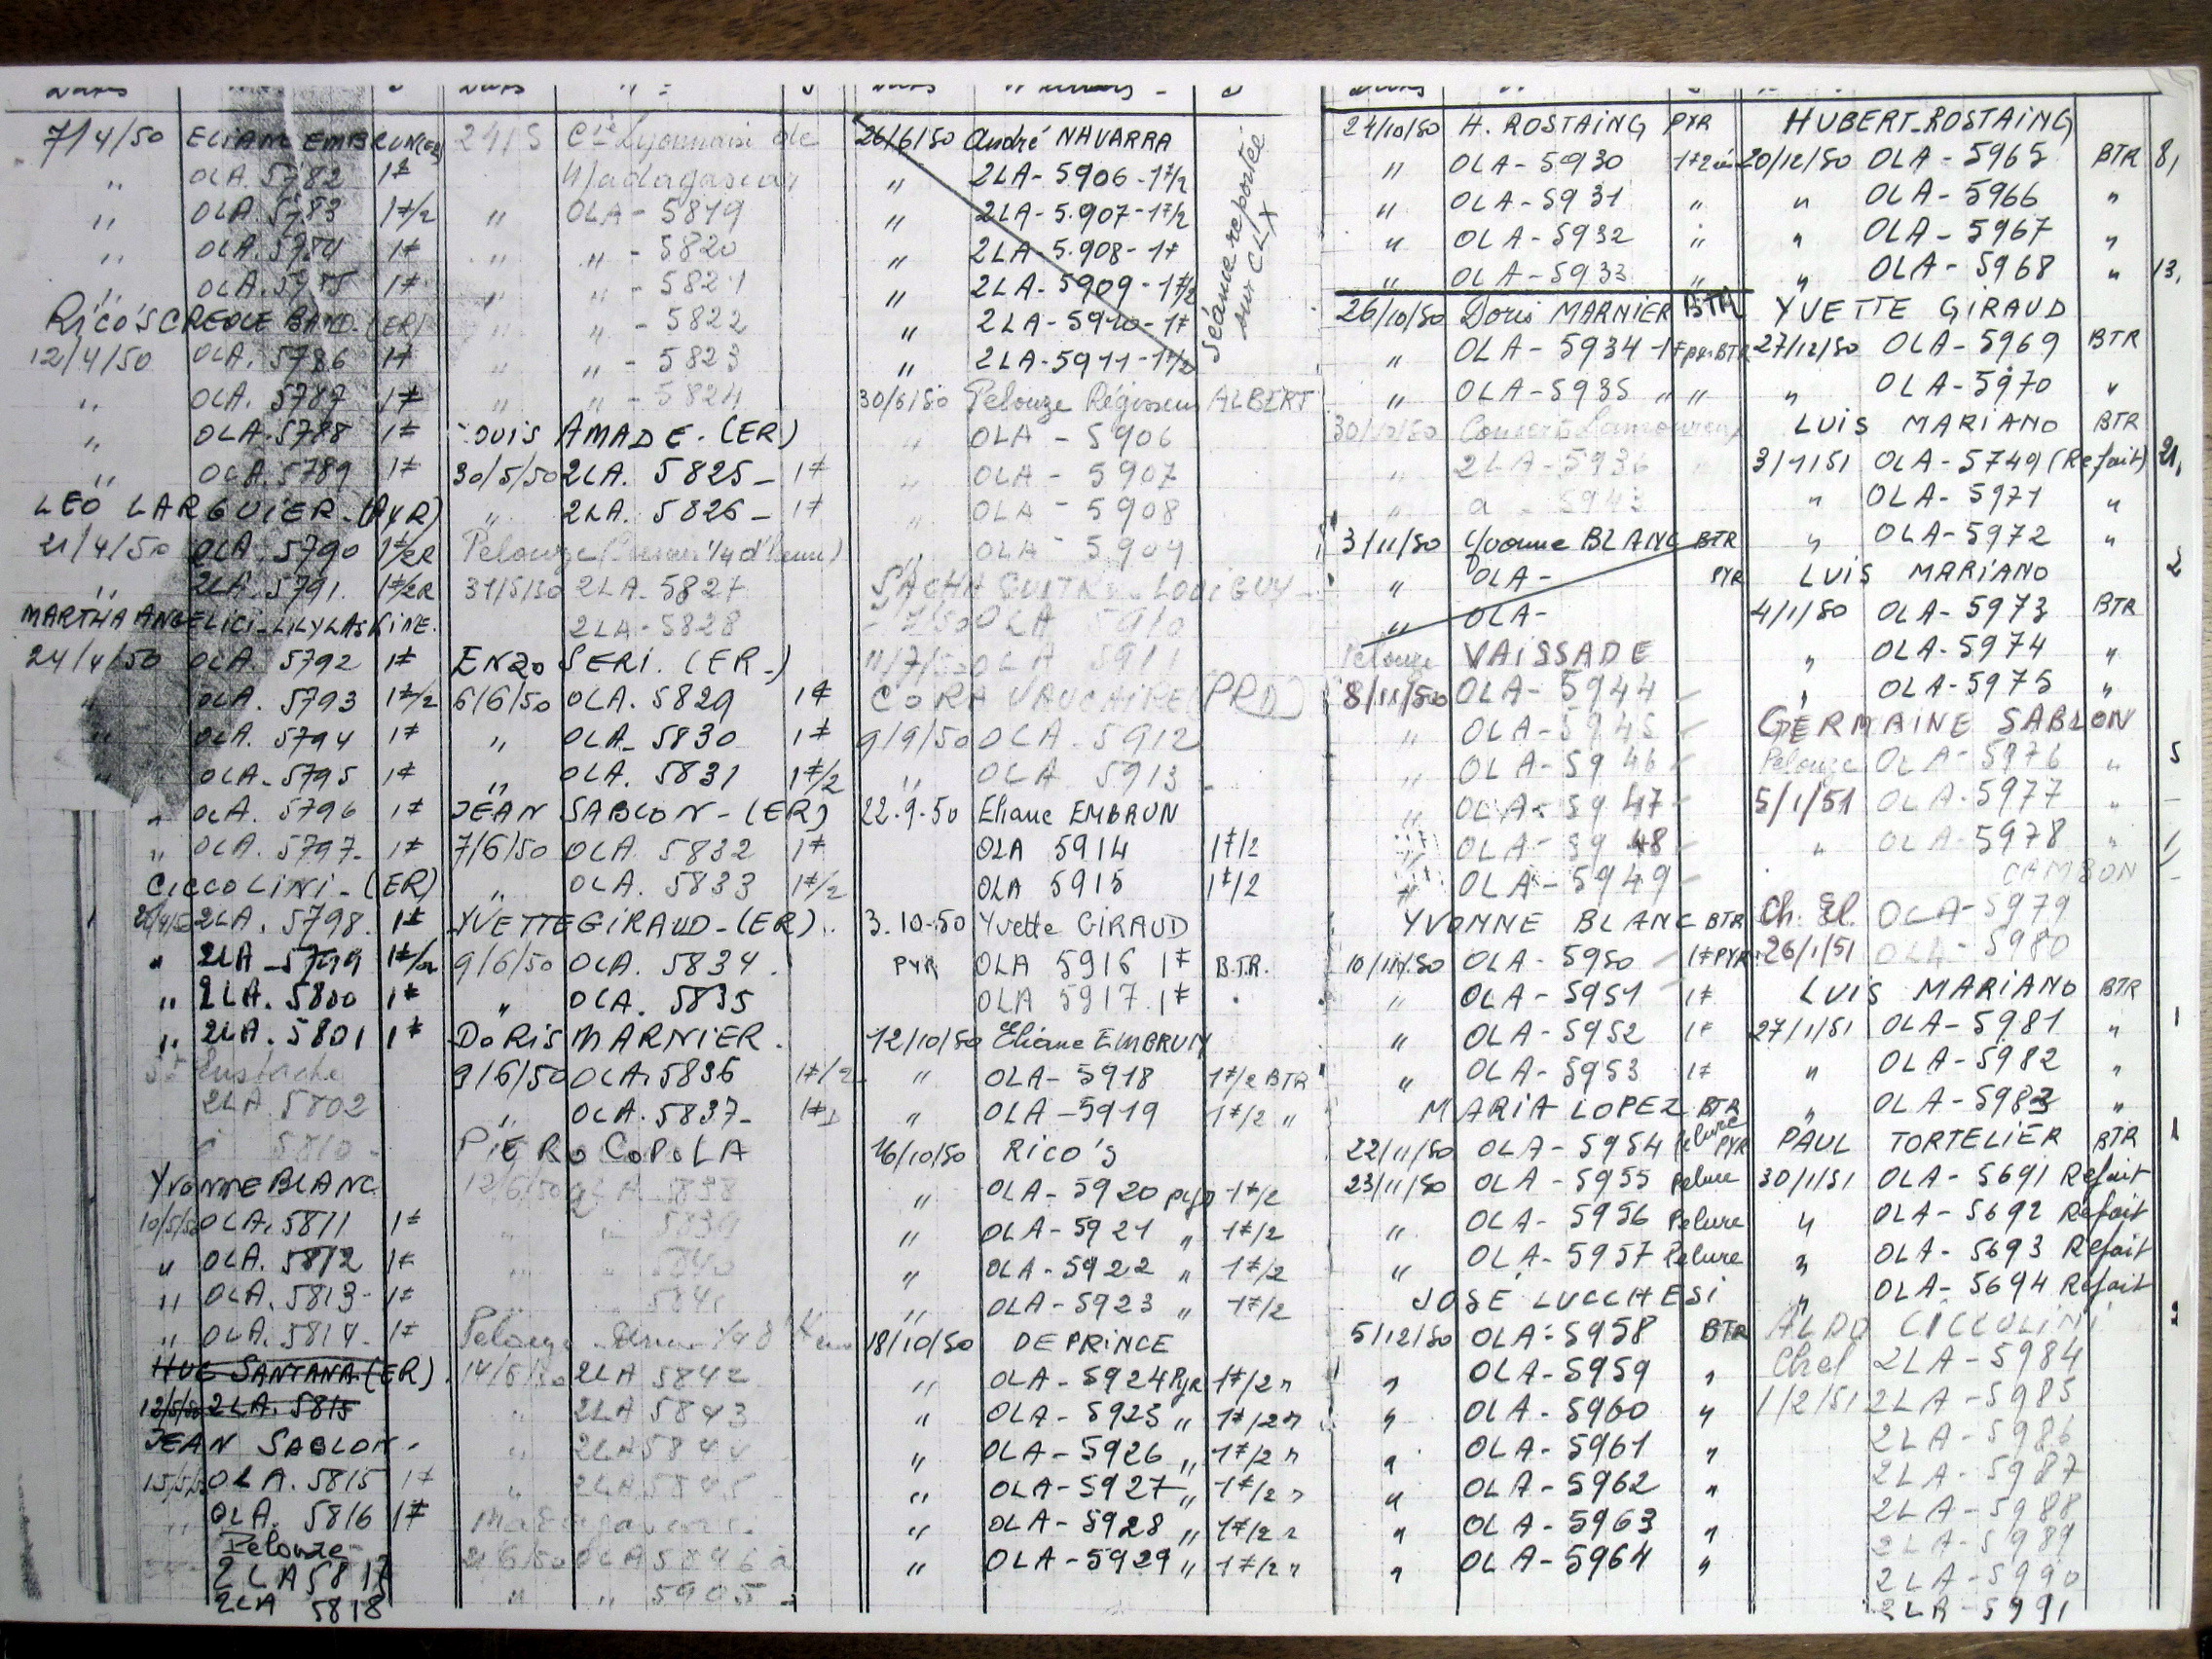 7/4/50 ELIANE EMBRUN (ER)
" OLA. 5782 1≠
" OLA. 5783 1≠/2
" OLA. 5784 1≠
" OLA. 5785 1≠
RICO'S CREOLE BAND. (ER)
12/4/50 OLA. 5786 1≠
" OLA. 5787 1≠
" OLA. 5788 1≠
" OLA. 5789 1≠
LEO LARGUIER - (PYR)
21/4/50 OLA. 5790 1≠/2R
" 2LA. 5791. 1≠/2R
MARTHA ANGELICI - LILY LASKINE.
24/4/50 OLA. 5792 1≠
" OLA. 5793 1≠/2
" OLA. 5794 1≠
" OLA. 5795 1≠
" OLA. 5796 1≠
" OLA. 5797- 1≠
CICCOLINI - (ER)
2LA. 5798. 1≠
" 2LA - 5799 1≠/2
" 2LA. 5800 1≠
" 2LA. 5801 1≠
St Eustache
2LA 5802
5810 -
YVONNE BLANC
10/5/50 OLA. 5811 1≠
" OLA. 5812 1≠
" OLA. 5813- 1≠
" OLA. 5814- 1≠
HUC SANTANA (ER).
12/5/50 2LA. 5815
JEAN SABLON -
15/5/50 OLA. 5815 1≠
" OLA. 5816 1≠
Pelouze-
2LA 5817
2LA 5818
24/5 Cie Lyonnaise de
Madagascar
" OLA - 5819
" " - 5820
" " - 5821
" " - 5822
" " - 5823
" " - 5824
LOUIS AMADE. (ER)
30/5/50 2LA. 5825 - 1≠
" 2LA. 5826 - 1≠
Pelouze ( 1/4 d'heure)
31/5/50 2LA - 5827
2LA - 5828
ENZO SERI. (ER-)
6/6/50 OLA. 5829 1≠
" OLA. 5830 1≠
" OLA. 5831 1≠/2
JEAN SABLON - (ER)
7/6/50 OLA. 5832 1≠
" OLA. 5833 1≠/2
YVETTE GIRAUD - (ER).
9/6/50 OLA. 5834.
" OLA. 5835
DORIS MARNIER.
9/6/50 OLA. 5836 1≠/2
" OLA. 5837- 1≠
PIERO COPOLA
12/6/50 2LA 5838
" " 5839
" " 5840
" " 5841
Pelouze 1/4 d'
14/6/50 2LA 5842
" 2LA 5843
" 2LA 5844
" 2LA 5845
21/6/50 OLA 5846 à
" " 5905 -
26/6/50 André NAVARRA
" 2LA - 5906 - 1≠/2
" 2LA - 5.907 - 1≠/2
" 2LA - 5.908 - 1≠
" 2LA - 5909 - 1≠/2
" 2LA - 5910 - 1≠
" 2LA - 5911 - 1≠/2
Séance reportée
sur CLX
30/6/50 Pelouze Régisseur ALBERT
" OLA - 5906
" OLA - 5907
" OLA - 5908
" OLA - 5909
SACHA GUITRY - LOUIGUY -
OLA 5910
11/7/50 OLA 5911
CORA VAUCAIRE (PRD)
9/9/50 OLA - 5912
" OLA 5913 -
22.9.50 Eliane EMBRUN
OLA 5914 1≠/2
OLA 5915 1≠/2
3.10-50 Yvette GIRAUD
PYR OLA 5916 1≠ B.T.R.
OLA 5917. 1≠
12/10/50 Eliane EMBRUN
" OLA - 5918 1≠/2 BTR
" OLA - 5919 1≠/2 "
16/10/50 RICO'S
" OLA - 5920 pyr 1≠/2
" OLA - 5921 " 1≠/2
" OLA - 5922 " 1≠/2
" OLA - 5923 " 1≠/2
18/10/50 DE PRINCE
" OLA - 5924 Pyr 1≠/2 "
" OLA - 5925 " 1≠/2 "
" OLA - 5926 " 1≠/2 "
" OLA - 5927 " 1≠/2 "
" OLA - 5928 " 1≠/2 "
" OLA - 5929 " 1≠/2 "
24/10/50 H. ROSTAING PYR
" OLA - 5930
" OLA - 5931 "
" OLA - 5932 "
" OLA - 5933 "
26/10/50 Doris MARNIER BTR
" OLA - 5934 - 1≠ pyr BTR
" OLA - 5935 " "
30/10/50 Concerts Lamoureux
" 2LA - 5936 "
" à - 5943
3/11/50 Yvonne BLANC BTR
" OLA - PYR
" OLA -
Pelouze VAISSADE
8/11/50 OLA - 5944
" OLA - 5945
" OLA - 5946
" OLA - 5947
" OLA - 5948
" OLA - 5949
YVONNE BLANC BTR
10/11/50 OLA - 5950 - 1≠ PYR
" OLA - 5951 1≠
" OLA - 5952 1≠
" OLA - 5953 1≠
MARIA LOPEZ BTR
22/11/50 OLA - 5954 Pelure PYR
23/11/50 OLA - 5955 Pelure
" OLA - 5956 Pelure
" OLA - 5957 Pelure
JOSÉ LUCCHESI
5/12/50 OLA - 5958 BTR
" OLA - 5959 "
" OLA - 5960 "
" OLA - 5961 "
" OLA - 5962 "
" OLA - 5963 "
" OLA - 5964 "
HUBERT-ROSTAING
20/12/50 OLA - 5965 BTR
" OLA - 5966 "
" OLA - 5967 "
" OLA - 5968 "
YVETTE GIRAUD
27/12/50 OLA - 5969 BTR
" OLA - 5970 "
LUIS MARIANO BTR
3/1/51 OLA - 5749 (Refait)
" OLA - 5971 "
" OLA - 5972 "
LUIS MARIANO
4/1/50 OLA - 5973 BTR
" OLA - 5974 "
" OLA - 5975 "
GERMAINE SABLON
Pelouze OLA - 5976 "
5/1/51 OLA - 5977 "
" OLA - 5978 "
CAMBON
Ch. El. OLA - 5979
26/1/51 OLA - 5980
LUIS MARIANO BTR
27/1/51 OLA - 5981 "
" OLA - 5982 "
" OLA - 5983 "
PAUL TORTELIER BTR
30/1/51 OLA - 5691 Refait
" OLA - 5692 Refait
" OLA - 5693 Refait
" OLA - 5694 Refait
ALDO CICCOLINI
Chel 2LA - 5984
1/2/51 2LA - 5985
2LA - 5986
2LA - 5987
2LA - 5988
2LA - 5989
2LA - 5990
2LA - 5991
8,
13,
21,
2
5
1
1
2